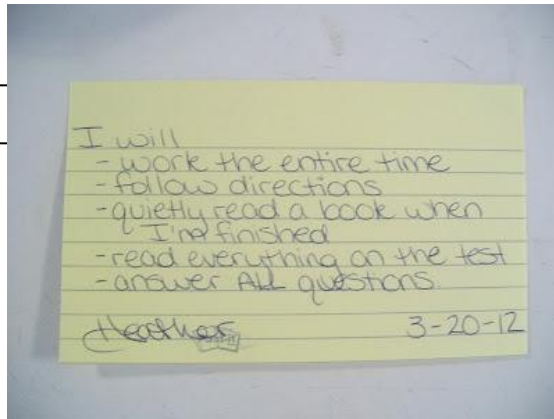 I will
- work the entire time
- follow directions
- quietly read a book when
I'm finished
- read everything on the test
- answer ALL questions
Heather
3-20-12